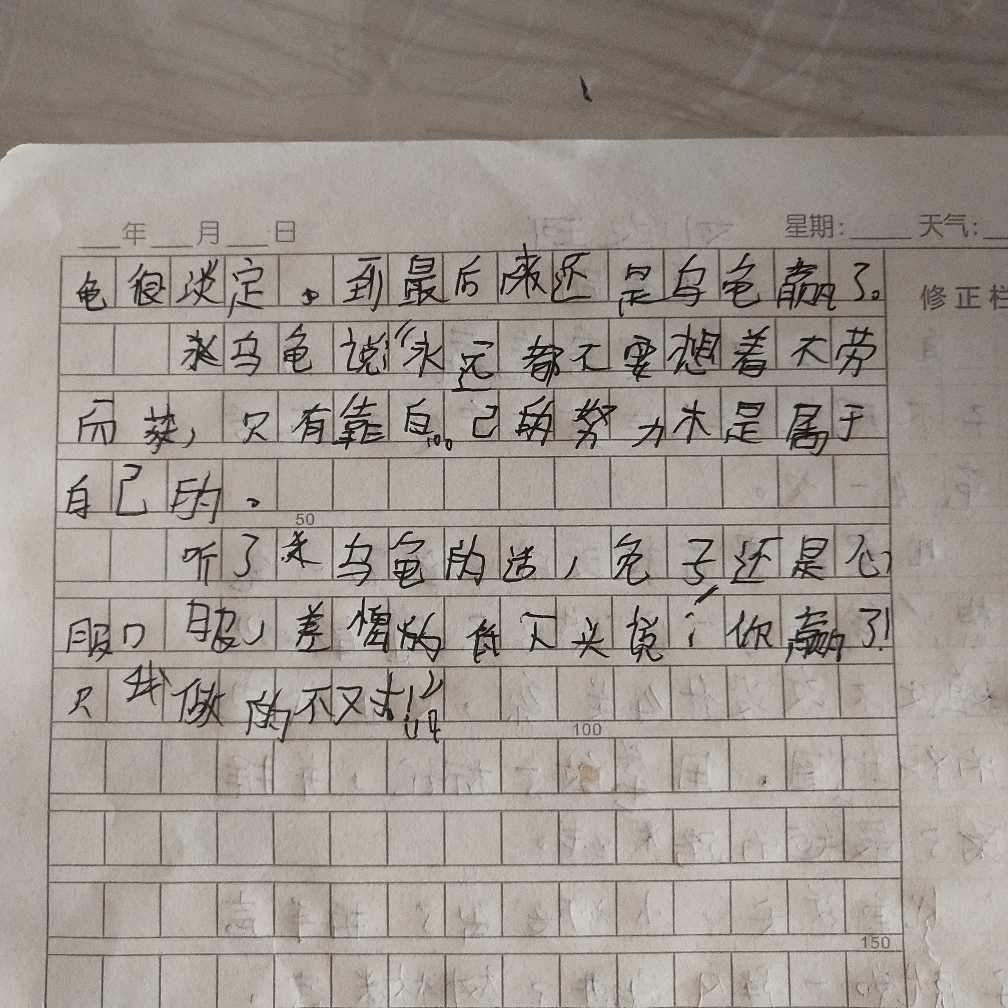 ___年___月___日 星期:____ 天气:
龟很淡定。到最后还是乌龟赢了。
修正栏
乌龟说“永远都不要想着不劳
而获,只有靠自己的努力才是属于
自己的。
50
听了乌龟的话,兔子还是心
服口服,差愧的低下头说:你赢了!
只我做的不对!
100
150